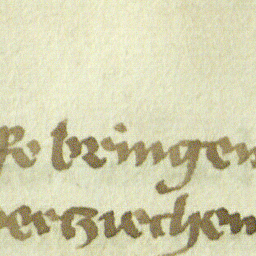 bringen
verziechen